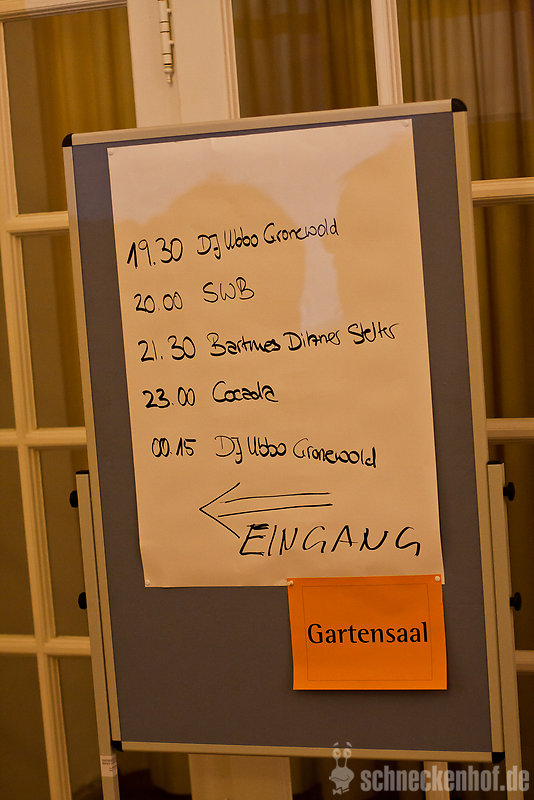 19.30 DJ Ubbo Gronewold
20.00 SWB
21.30 Bartmes Ditzner Stelter
23.00 Cocada
00.15 DJ Ubbo Gronewold
EINGANG
Gartensaal
schneckenhof.de